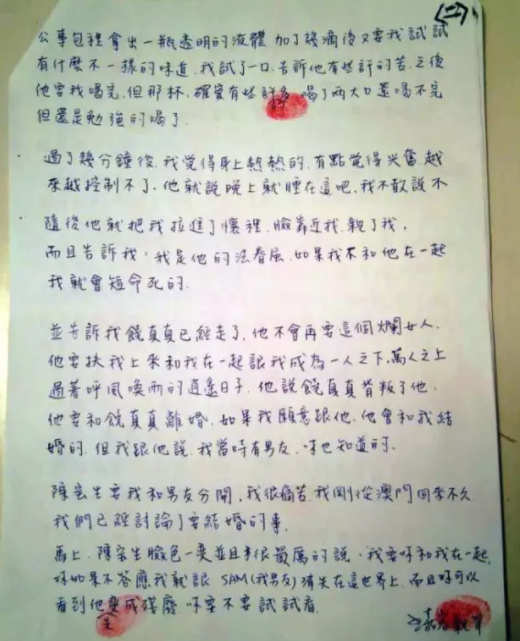 (二)
公事包裡拿出一瓶透明的液體加了幾滴後又要我試試
有什麼不一樣的味道.我試了一口.告訴他有些許的苦.之後
他要我喝完.但那杯.確實有些許多喝了兩大口還喝不完
但還是勉強的喝了.
過了幾分鐘後.我覺得身上熱熱的.有點覺得興奮越
來越控制不了.他就說晚上就睡在這吧.我不敢說不
隨後他就把我拉進了懷裡.臉靠近我.親了我.
而且告訴我.我是他的法眷屬.如果我不和他在一起
我就會短命死的.
並告訴我饒真真已經走了.他不會再要這個爛女人.
他要扶我上來和我在一起讓我成為一人之下.萬人之上
過著呼風喚雨的逍遙日子.他說饒真真背叛了他.
他要和饒真真離婚.如果我願意跟他.他會和我結
婚的.但我跟他說.我當時有男友.你也知道的.
陳宏生要我和男友分開.我很痛苦.我剛從澳門回來不久
我們已經討論了要結婚的事.
馬上.陳宏生臉色一變並且事很嚴厲的說.我要你和我在一起.
你如果不答應我就讓 SAM(我男友)消失在這世界上.而且你可以
看到他變成殘廢 你要不要試試看.